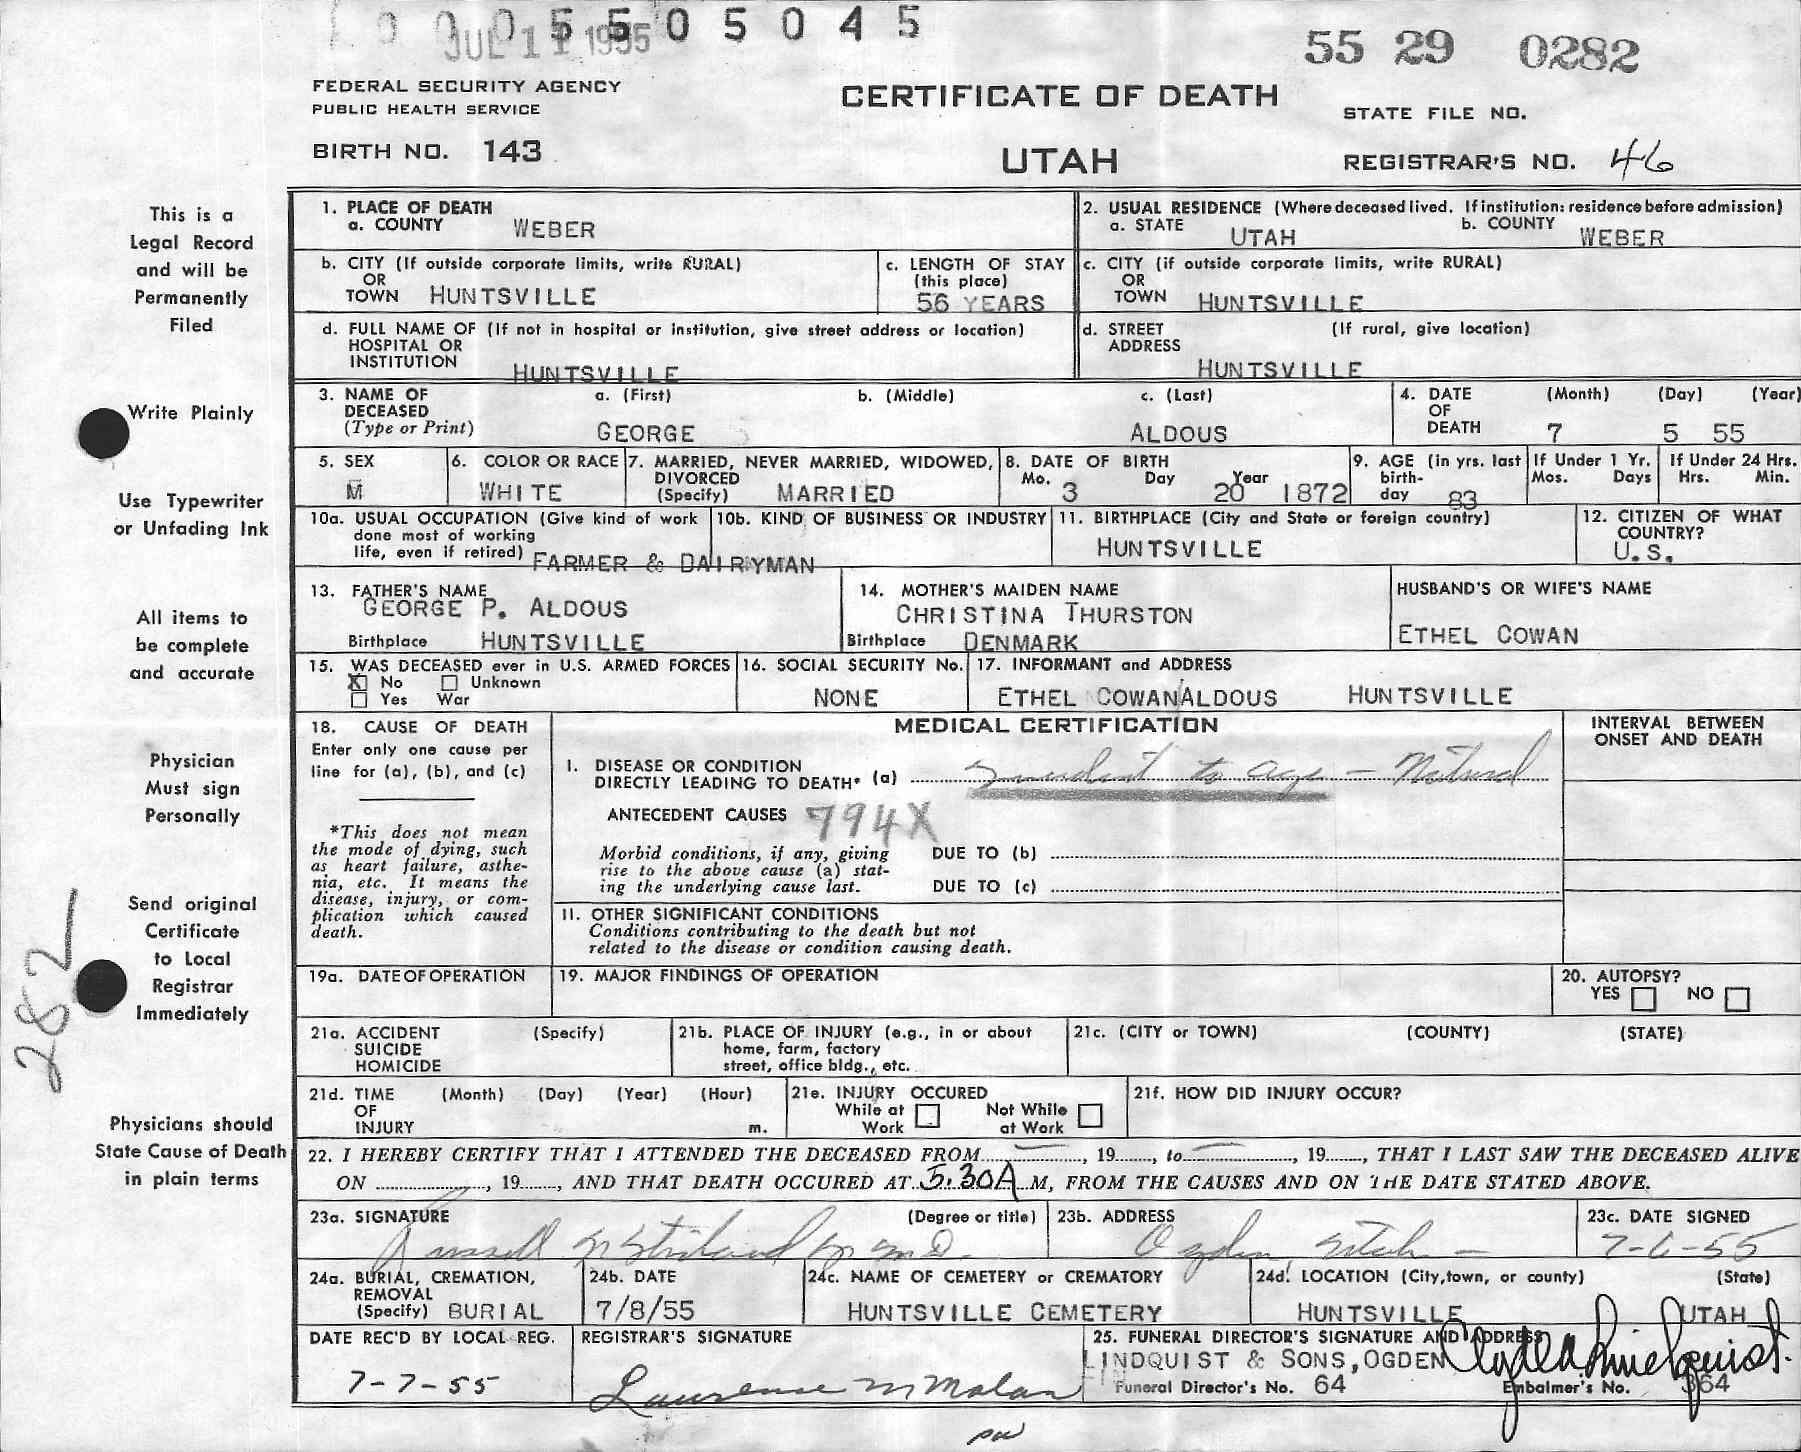 0 0 0 5 5 0 5 0 4 5
JUL 11 1955
55 29 0282
FEDERAL SECURITY AGENCY
PUBLIC HEALTH SERVICE
CERTIFICATE OF DEATH
STATE FILE NO.
BIRTH NO. 143
UTAH
REGISTRAR'S NO. 46
This is a
Legal Record
and will be
Permanently
Filed
Write Plainly
Use Typewriter
or Unfading Ink
All items to
be complete
and accurate
Physician
Must sign
Personally
Send original
Certificate
to Local
Registrar
Immediately
Physicians should
State Cause of Death
in plain terms
282
1. PLACE OF DEATH
a. COUNTY WEBER
2. USUAL RESIDENCE (Where deceased lived. If institution: residence before admission)
a. STATE UTAH b. COUNTY WEBER
b. CITY (If outside corporate limits, write RURAL)
OR
TOWN HUNTSVILLE
c. LENGTH OF STAY
(this place)
56 YEARS
c. CITY (if outside corporate limits, write RURAL)
OR
TOWN HUNTSVILLE
d. FULL NAME OF (If not in hospital or institution, give street address or location)
HOSPITAL OR
INSTITUTION HUNTSVILLE
d. STREET (If rural, give location)
ADDRESS
HUNTSVILLE
3. NAME OF a. (First) b. (Middle) c. (Last)
DECEASED
(Type or Print) GEORGE ALDOUS
4. DATE (Month) (Day) (Year)
OF
DEATH 7 5 55
5. SEX
M
6. COLOR OR RACE
WHITE
7. MARRIED, NEVER MARRIED, WIDOWED,
DIVORCED
(Specify) MARRIED
8. DATE OF BIRTH
Mo. 3 Day 20 Year 1872
9. AGE (in yrs. last
birth-
day 83
If Under 1 Yr.
Mos. Days
If Under 24 Hrs.
Hrs. Min.
10a. USUAL OCCUPATION (Give kind of work
done most of working
life, even if retired) FARMER & DAIRYMAN
10b. KIND OF BUSINESS OR INDUSTRY
11. BIRTHPLACE (City and State or foreign country)
HUNTSVILLE
12. CITIZEN OF WHAT
COUNTRY?
U.S.
13. FATHER'S NAME
GEORGE P. ALDOUS
Birthplace HUNTSVILLE
14. MOTHER'S MAIDEN NAME
CHRISTINA THURSTON
Birthplace DENMARK
HUSBAND'S OR WIFE'S NAME
ETHEL COWAN
15. WAS DECEASED ever in U.S. ARMED FORCES
X No Unknown
Yes War
16. SOCIAL SECURITY No.
NONE
17. INFORMANT and ADDRESS
ETHEL COWAN/ALDOUS HUNTSVILLE
18. CAUSE OF DEATH
Enter only one cause per
line for (a), (b), and (c)
*This does not mean
the mode of dying, such
as heart failure, asthe-
nia, etc. It means the
disease, injury, or com-
plication which caused
death.
MEDICAL CERTIFICATION
INTERVAL BETWEEN
ONSET AND DEATH
I. DISEASE OR CONDITION
DIRECTLY LEADING TO DEATH* (a) to age - Natural
ANTECEDENT CAUSES 794X
Morbid conditions, if any, giving
rise to the above cause (a) stat-
ing the underlying cause last.
DUE TO (b)
DUE TO (c)
II. OTHER SIGNIFICANT CONDITIONS
Conditions contributing to the death but not
related to the disease or condition causing death.
19a. DATE OF OPERATION
19. MAJOR FINDINGS OF OPERATION
20. AUTOPSY?
YES NO
21a. ACCIDENT (Specify)
SUICIDE
HOMICIDE
21b. PLACE OF INJURY (e.g., in or about
home, farm, factory
street, office bldg., etc.
21c. (CITY or TOWN) (COUNTY) (STATE)
21d. TIME (Month) (Day) (Year) (Hour)
OF
INJURY m.
21e. INJURY OCCURED
While at Work Not While at Work
21f. HOW DID INJURY OCCUR?
22. I HEREBY CERTIFY THAT I ATTENDED THE DECEASED FROM ......, 19......, to ......, 19......, THAT I LAST SAW THE DECEASED ALIVE
ON ......, 19......, AND THAT DEATH OCCURED AT 5:30A M, FROM THE CAUSES AND ON THE DATE STATED ABOVE.
23a. SIGNATURE (Degree or title)
Russell M.D.
23b. ADDRESS
Ogden, Utah -
23c. DATE SIGNED
7-6-55
24a. BURIAL, CREMATION,
REMOVAL
(Specify) BURIAL
24b. DATE
7/8/55
24c. NAME OF CEMETERY or CREMATORY
HUNTSVILLE CEMETERY
24d. LOCATION (City, town, or county) (State)
HUNTSVILLE UTAH
DATE REC'D BY LOCAL REG.
7-7-55
REGISTRAR'S SIGNATURE
Laurence M Malan
25. FUNERAL DIRECTOR'S SIGNATURE AND ADDRESS
LINDQUIST & SONS, OGDEN Clyde A Lindquist.
Funeral Director's No. 64 Embalmer's No. 364